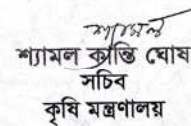 শ্যামল কান্তি ঘোষ
সচিব
কৃষি মন্ত্রণালয়